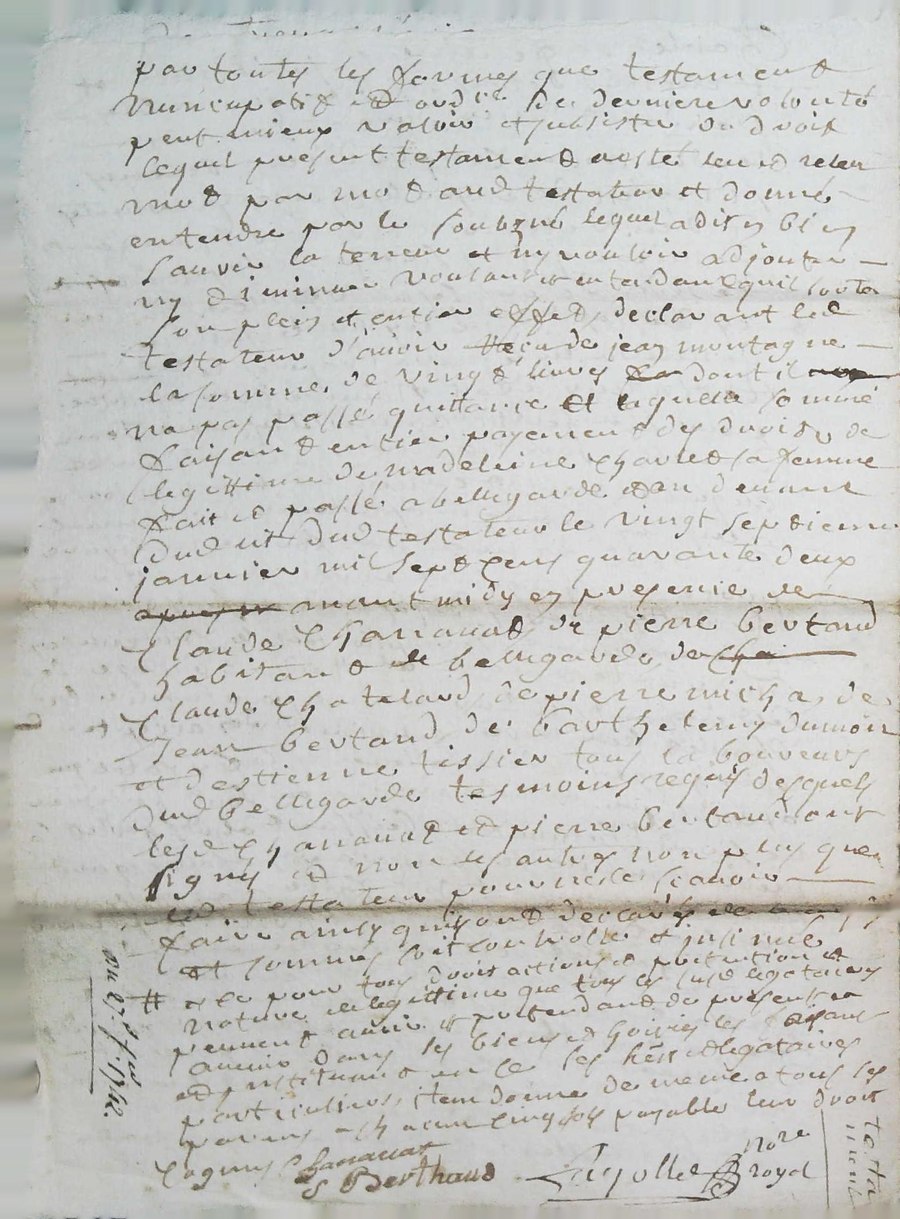 par toutes les formes que testament
nuncupatif et ord.re de derniere volonté
peut mieux valoir et subsister de droit
lequel present testament a esté leu et releu
mot par mot aud testateur et donné
entendre par le soubzné lequel a dit bien
scavoir la teneur et ny vouloir adjouter
ny diminuer voulant et entendant quil sorte
son plein et entier effet, declarant led
testateur d'avoir receu de jean montagne
la somme de vingt livres dont il
na pas passé quittance et laquelle somme
faisant entier payement des droits de
legittime de madeleine charret sa femme
fait et passé a bellegarde dan
dud testateur le vingt septieme
janvier mil sept cens quarante deux
avant midy en presence de
Claude Chanauat de pierre bertaud
habitant de bellegarde, de
Claude Chatelard, de pierre micha, de
Jean bertaud, de barthelemy dumoin
et d'estienne tissier tous laboureurs
dud bellegarde tesmoins requis desquels
lesd Chanauat et pierre bertaud ont
signé et non les autres non plus que
led testateur pour ne le scavoir
faire ainsy quils ont declaré
et sommés soit controllé et insinué
# et ce pour tous droit actions et pretention et
nature de legittime que tous les susd legataires
peuvent avoir et pretendre de present et a
avenir dans les biens et hoiries les faisant
et instituant en ce ses hers et legataires
particuliers, item donne de meme a tous ses
parens a chacun cinq sols payable leur droit
Chanauat
P Berthaud
nore
royal
du 27e
1742
testa
ment